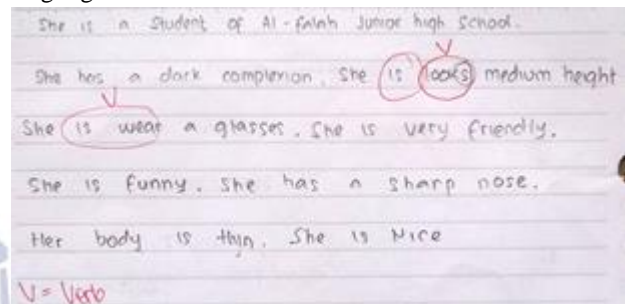 She is a Student of Al-falah Junior high School.
V
She has a dark complexion. She is looks medium height
V
She is wear a glasses. She is very friendly.
She is funny. She has a sharp nose.
Her body is thin. She is Nice
V = Verb